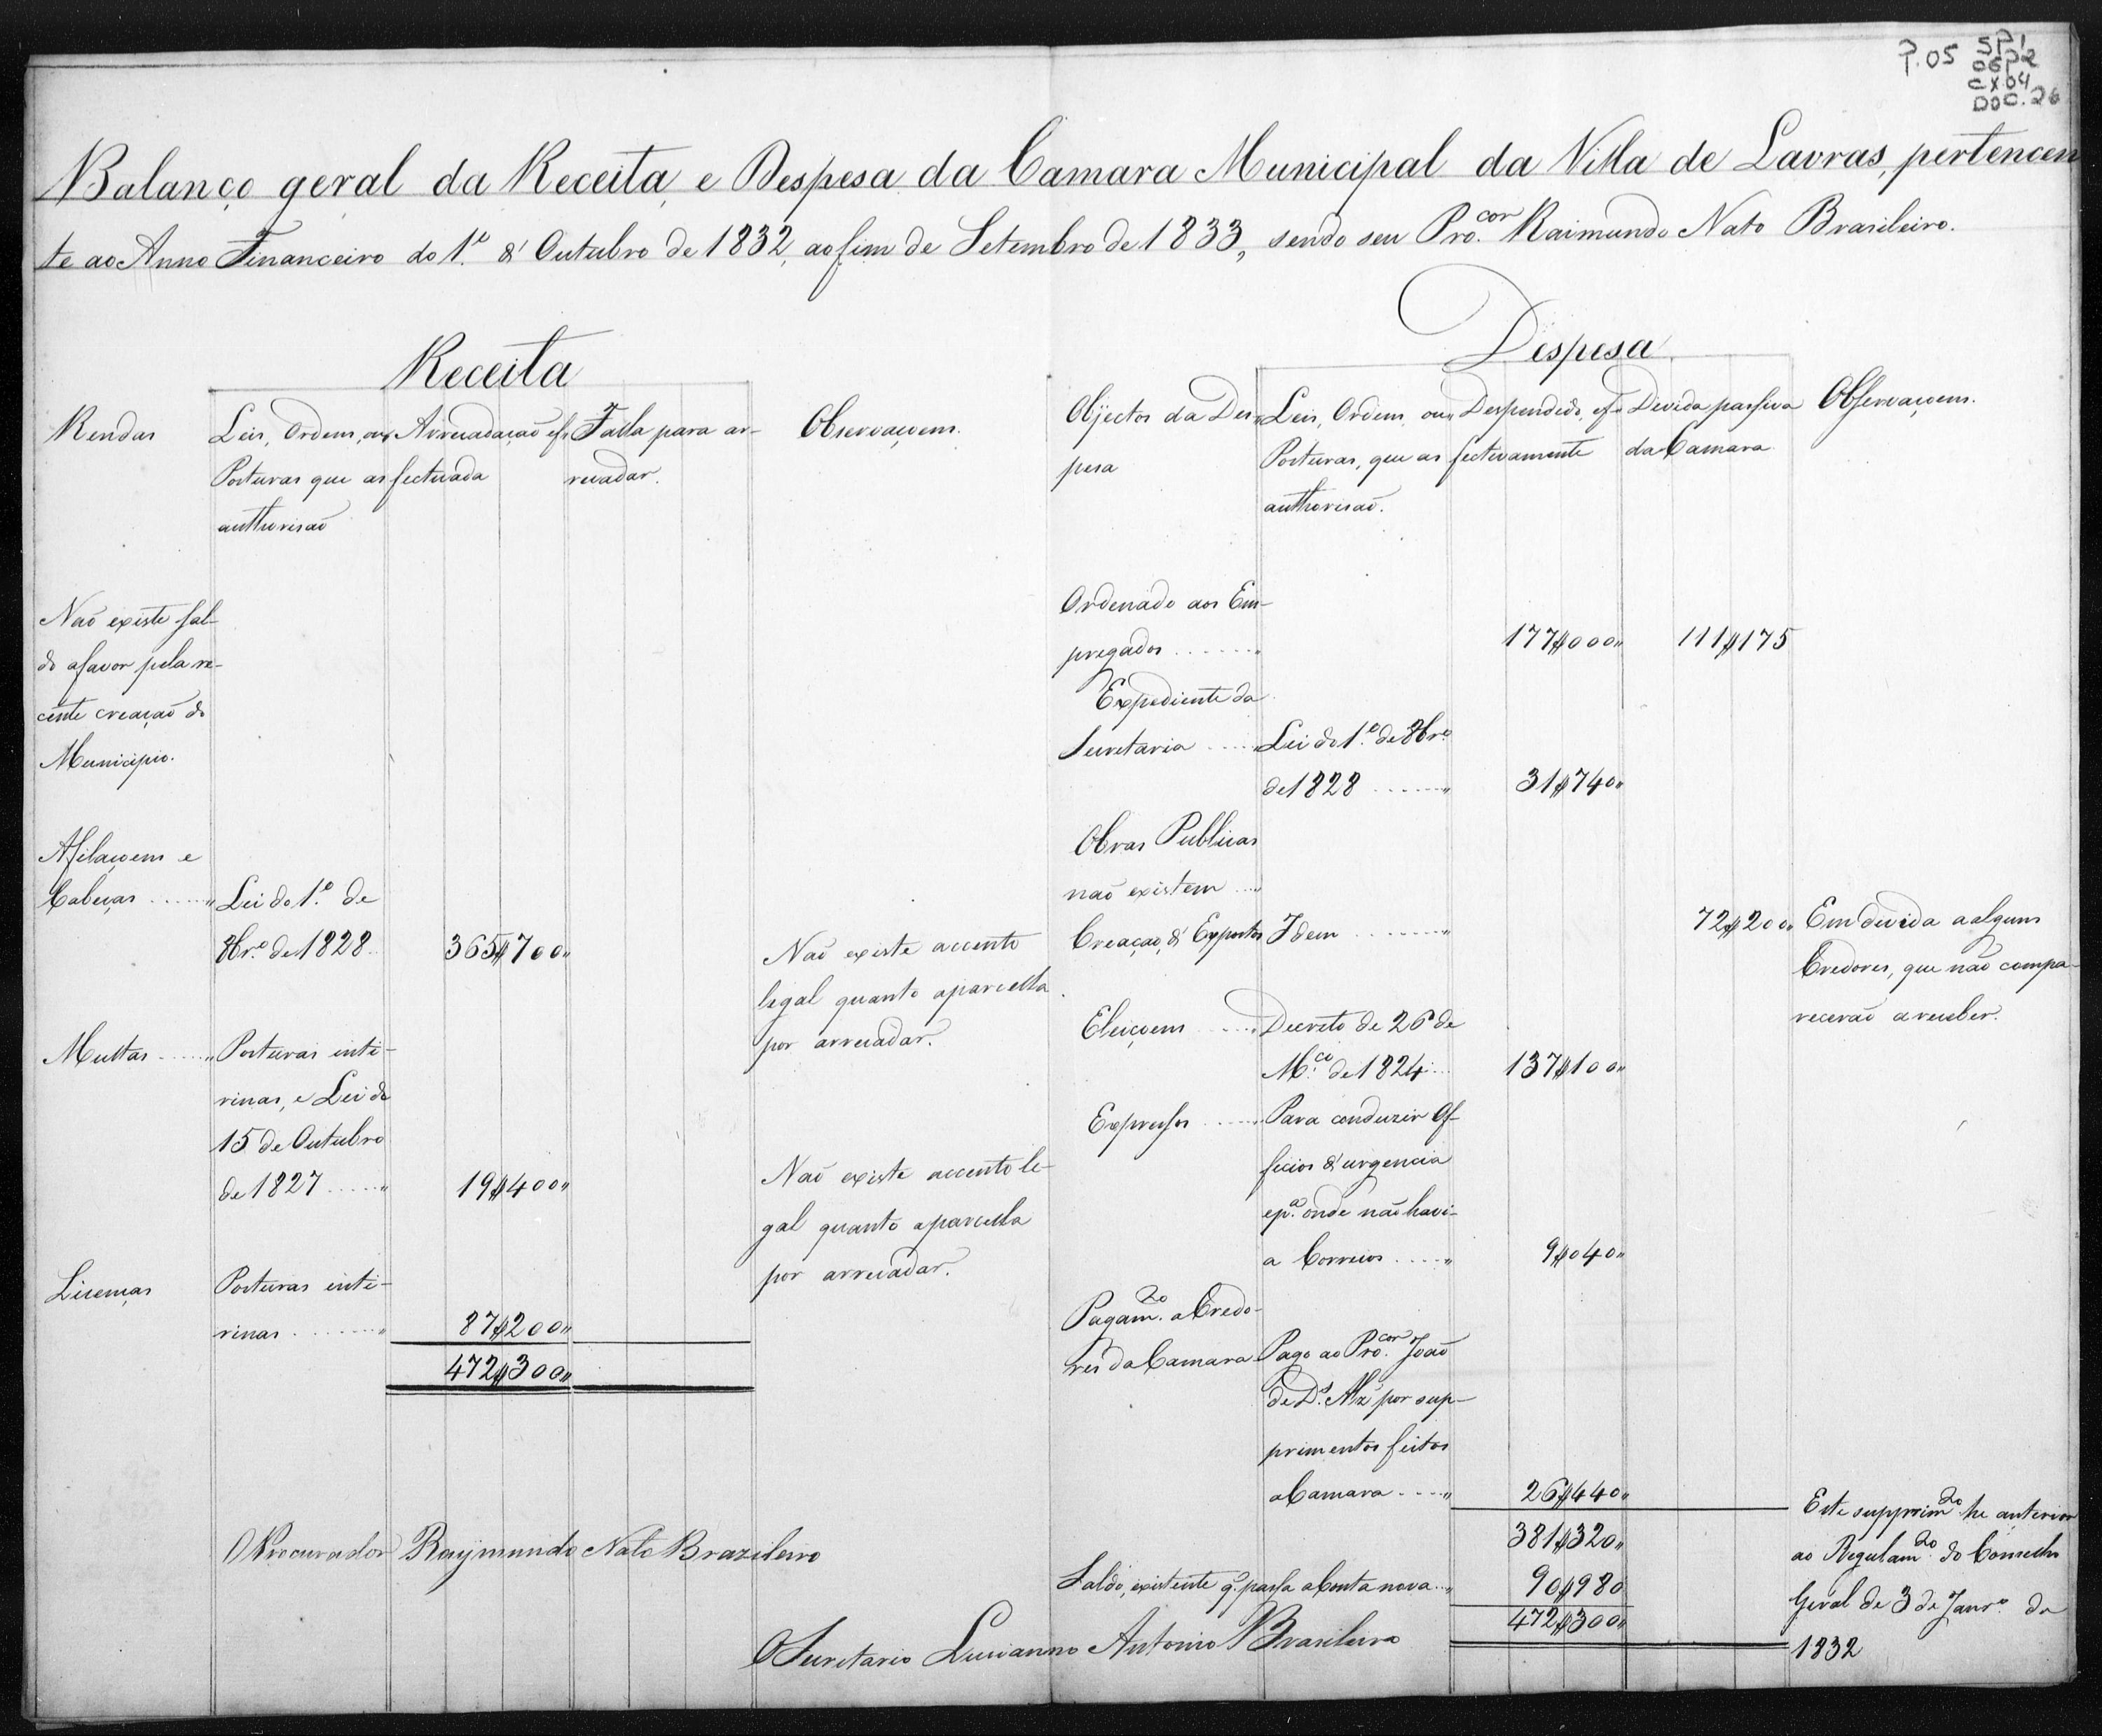 P.05 SP1
06P2
CX.04
DOC.26
Balanço geral da Receita, e Despesa da Camara Municipal da Villa de Lavras, pertencen
te ao Anno Financeiro do 1.º d' Outubro de 1832, ao fim de Setembro de 1833, sendo seu Pro.cor Raimundo Nato Brasileiro.
Receita
Rendas
Leis, Ordens, ou
Posturas que as
authorisaõ
Arrecadação ef-
fectuada
Falta para ar-
recadar.
Observaçoens.
Naõ existe sal-
do afavor pela re-
cente creaçaõ do
Municipio.
Afilaçoens e
Cabeças ......"
Lei do 1.º de
8br.º de 1828..
365$700"
Naõ existe accento
legal quanto aparcella
por arrecadar.
Multas ......"
Posturas inte-
rinas, e Lei de
15 de Outubro
de 1827 ....."
19$400"
Naõ existe accento le-
gal quanto aparcella
por arrecadar.
Licenças
Posturas inte-
rinas ........"
87$200"
472$300"
O Procurador Raymundo Nato Brazileiro
Despesa
Objectos da Des-
pesa
Leis, Ordens, ou
Posturas, que as
authorisaõ.
Despendido, ef-
fectivamente
Devida passiva
da Camara
Observaçoens.
Ordenado aos Em-
pregados ......."
177$000"
111$175
Expediente da
Secretaria ....."
Lei do 1.º de 8br.º
de 1828 ......."
31$740"
Obras Publicas
naõ existem ...."
Creaçaõ, d' Expostos
Idem ........."
72$200"
Em devida a alguns
Credores, que não compa-
receraõ a receber.
Eleiçoens ....."
Decreto de 26 de
M.ço de 1824...
137$100"
Expressos ......"
Para conduzir Of-
ficios d' urgencia
e p.ª onde naõ havi-
a Correios ....."
9$040"
Pagam.to a Credo-
res da Camara
Pago ao Pro.cor João
de D.s Mz por sup-
primentos feitos
a Camara ....."
26$440"
381$320"
Este supprim.to he anterior
ao Regulam.to do Conselho
Geral de 3 de Janr.º de
1832
Saldo, existente q.' passa a Conta nova..."
90$980
472$300"
O Secretario Lucianno Antonio Brasileiro